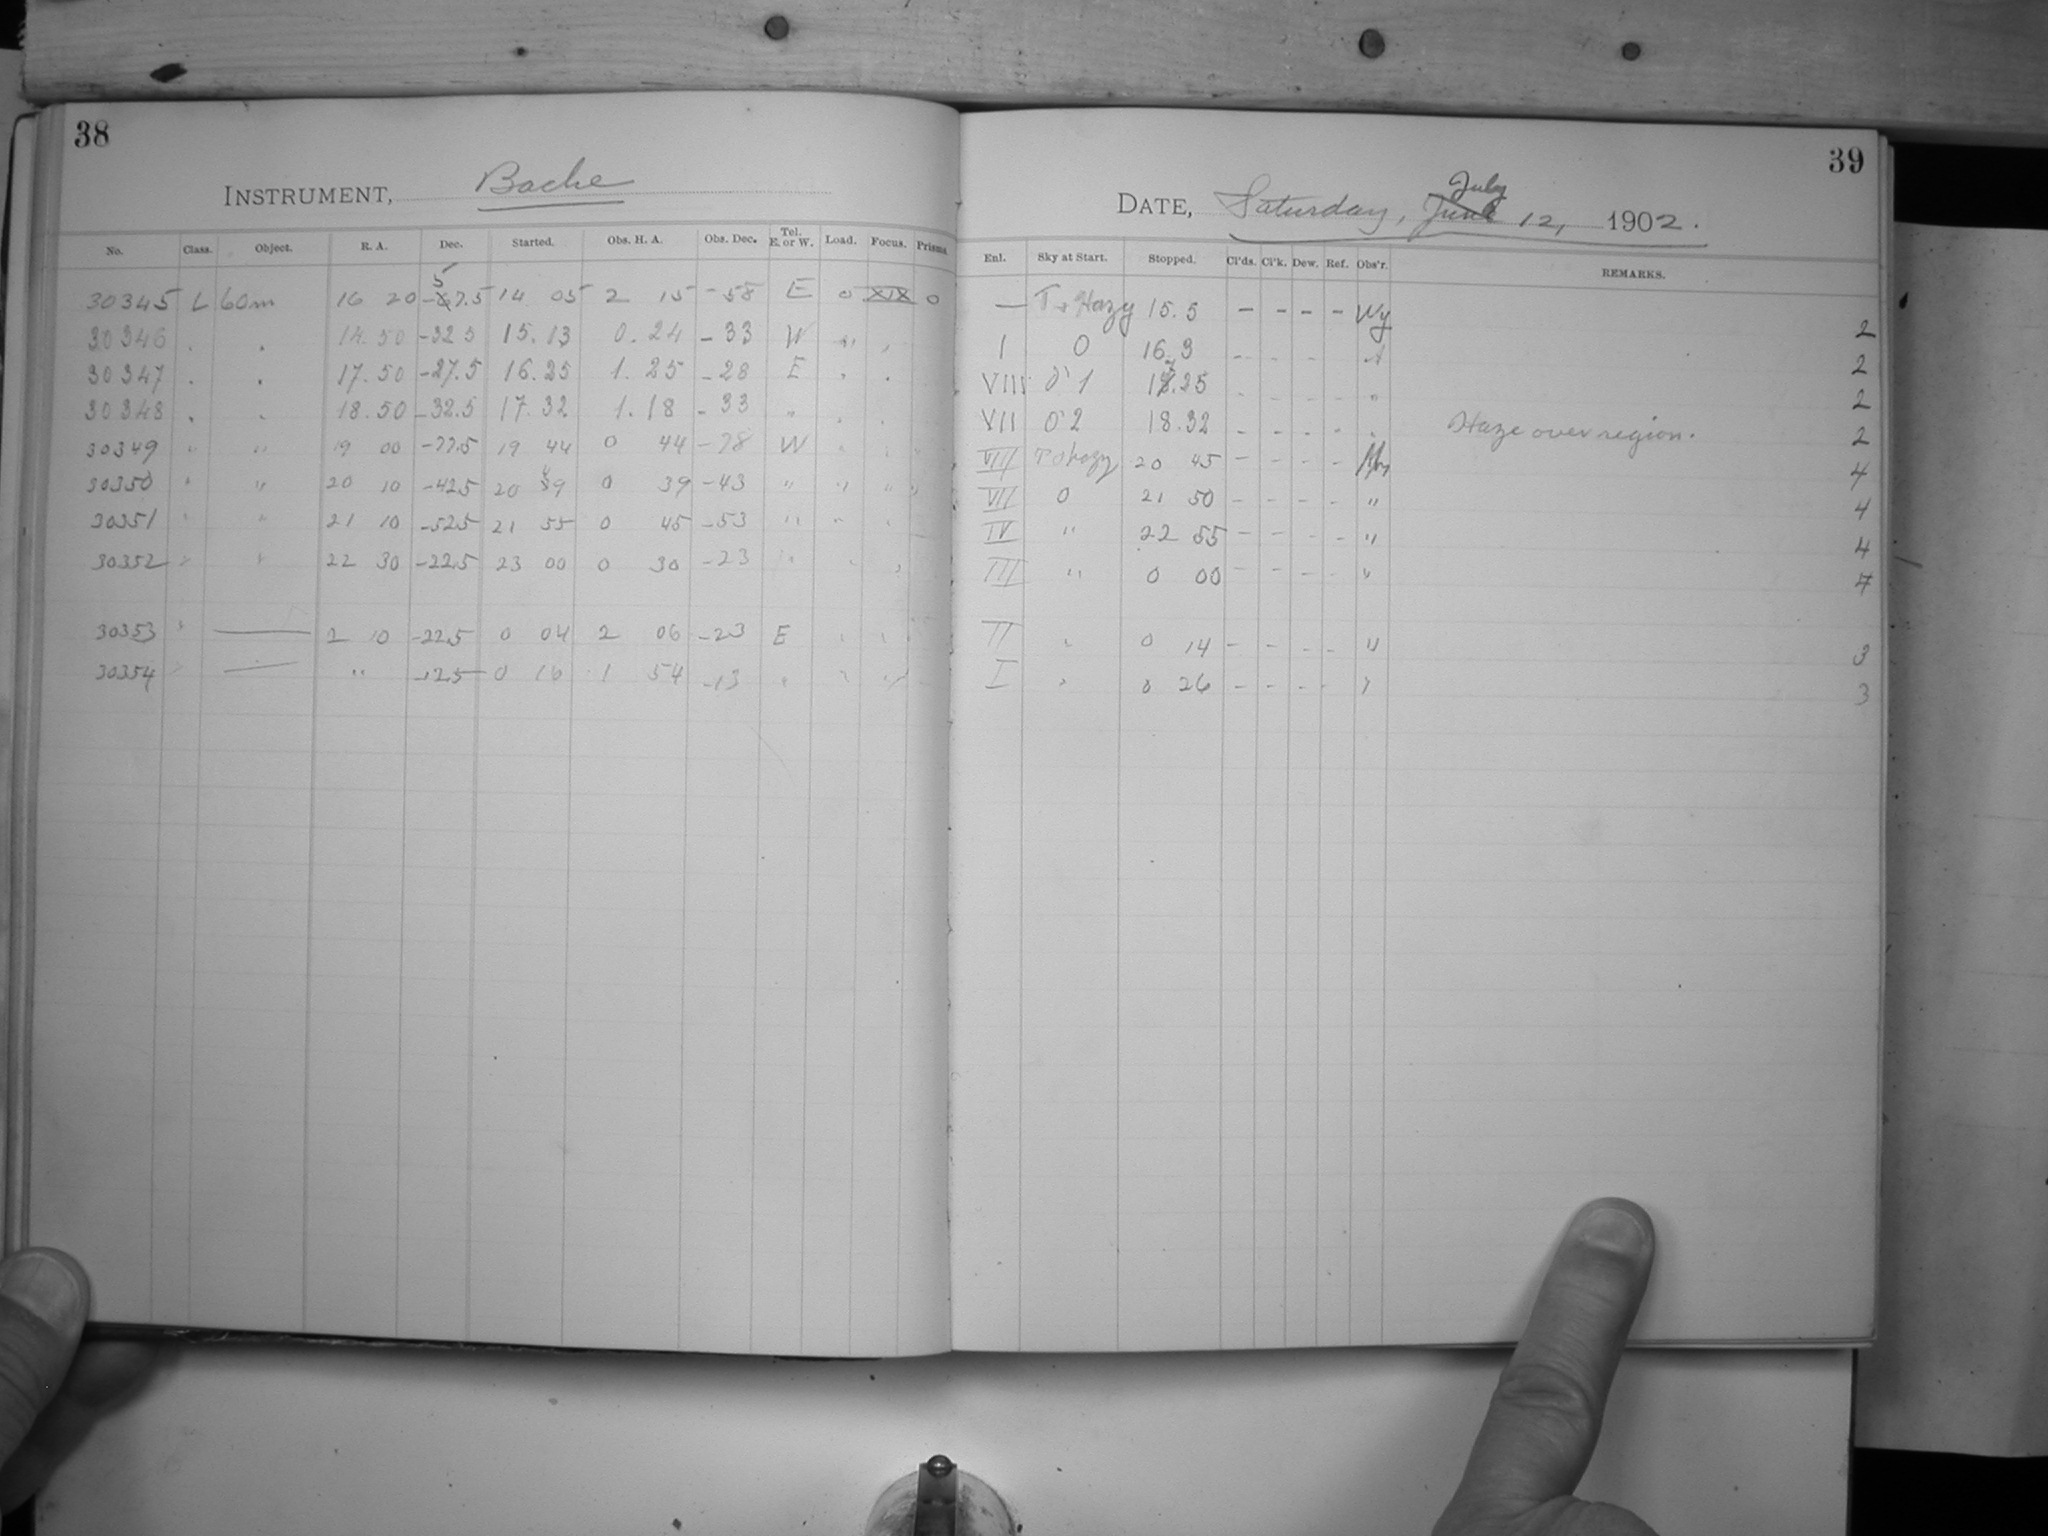 38
INSTRUMENT, Bache
No. Class. Object. R. A. Dec. Started. Obs. H. A. Obs. Dec. Tel. E. or W. Load. Focus. Prisms
30345 L 60m 16 20 -57.5 14 05 2 15 -58 E 0 XIX 0
30346 . . 14.50 -32.5 15.13 0.24 -33 W " "
30347 . . 17.50 -27.5 16.25 1.25 -28 E " "
30348 . . 18.50 -32.5 17.32 1.18 -33 " . .
30349 " " 19 00 -77.5 19 44 0 44 -78 W " " "
30350 " " 20 10 -42.5 20 49 0 39 -43 " " " "
30351 " " 21 10 -52.5 21 55 0 45 -53 " " "
30352 " " 22 30 -22.5 23 00 0 30 -23 " " "
30353 " — 2 10 -22.5 0 04 2 06 -23 E " " "
30354 " — " -12.5 0 16 1 54 -13 " " " -
39
DATE, Saturday, June July 12, 1902.
Enl. Sky at Start. Stopped. Cl'ds. Cl'k. Dew. Ref. Obs'r. REMARKS.
— Hazy 15.5 - - - - Wy 2
I 0 16.3 - - - - 2
VIII 0'1 17.25 - - - - " 2
VII 0'2 18.32 - - - - " Haze over region. 2
VIII hazy 20 45 - - - - 4
VII 0 21 50 - - - - " 4
IV " 22 55 - - - - " 4
III " 0 00 - - - - " 4
II " 0 14 - - - - " 3
I " 0 26 - - - - " 3